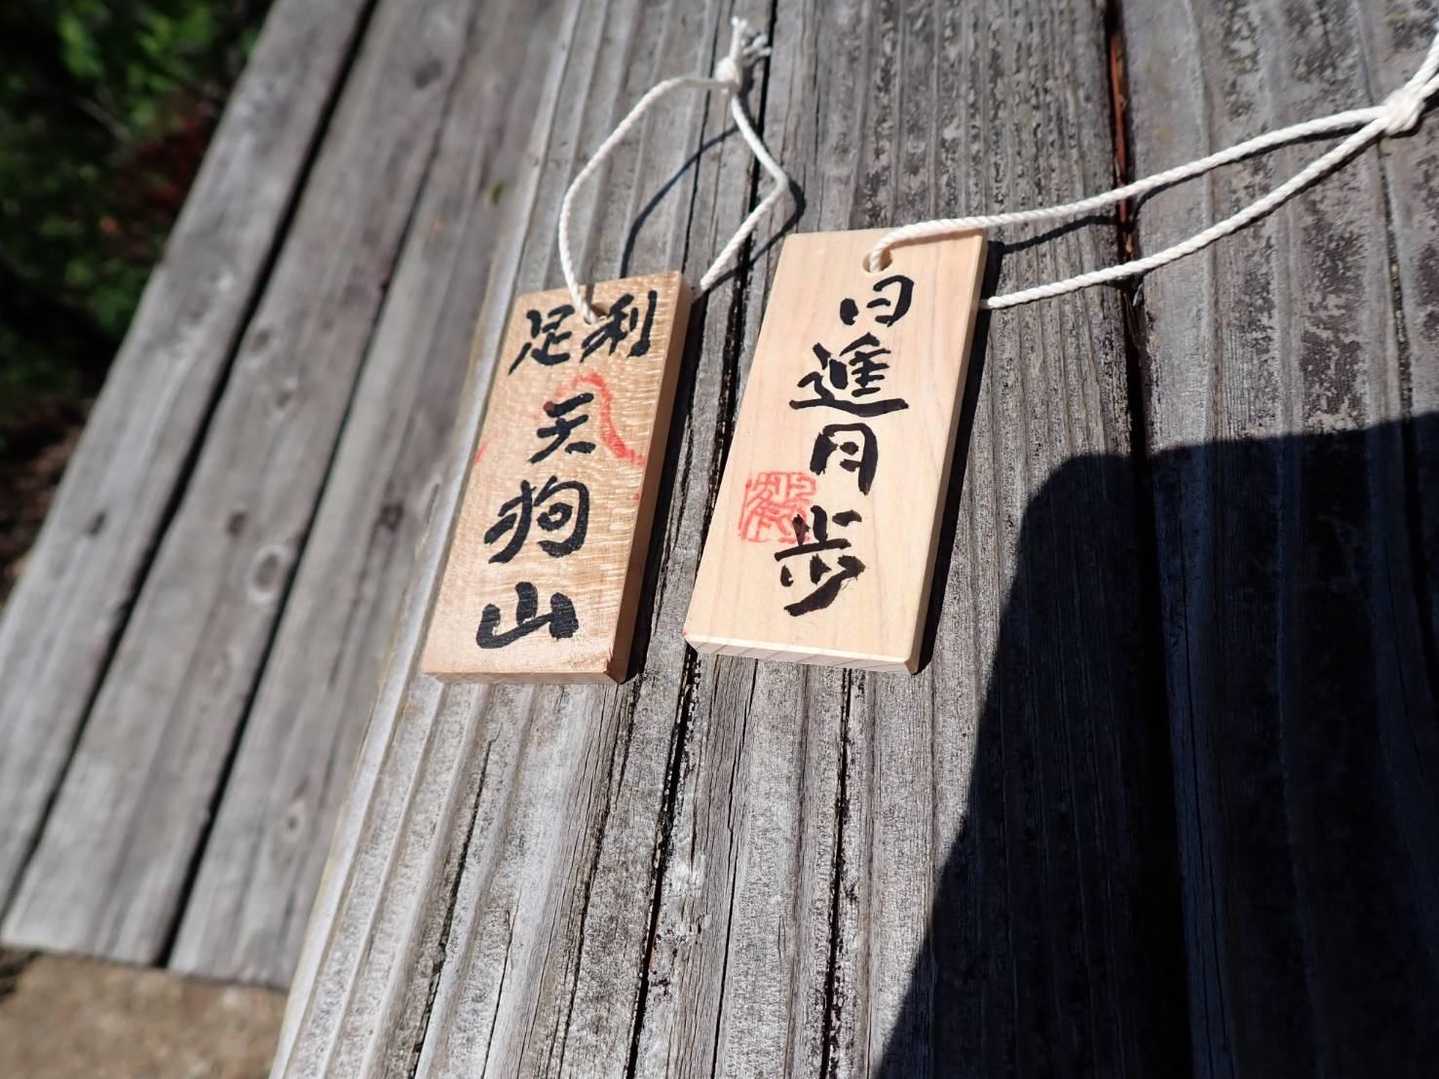 足利
天狗山
日進月歩